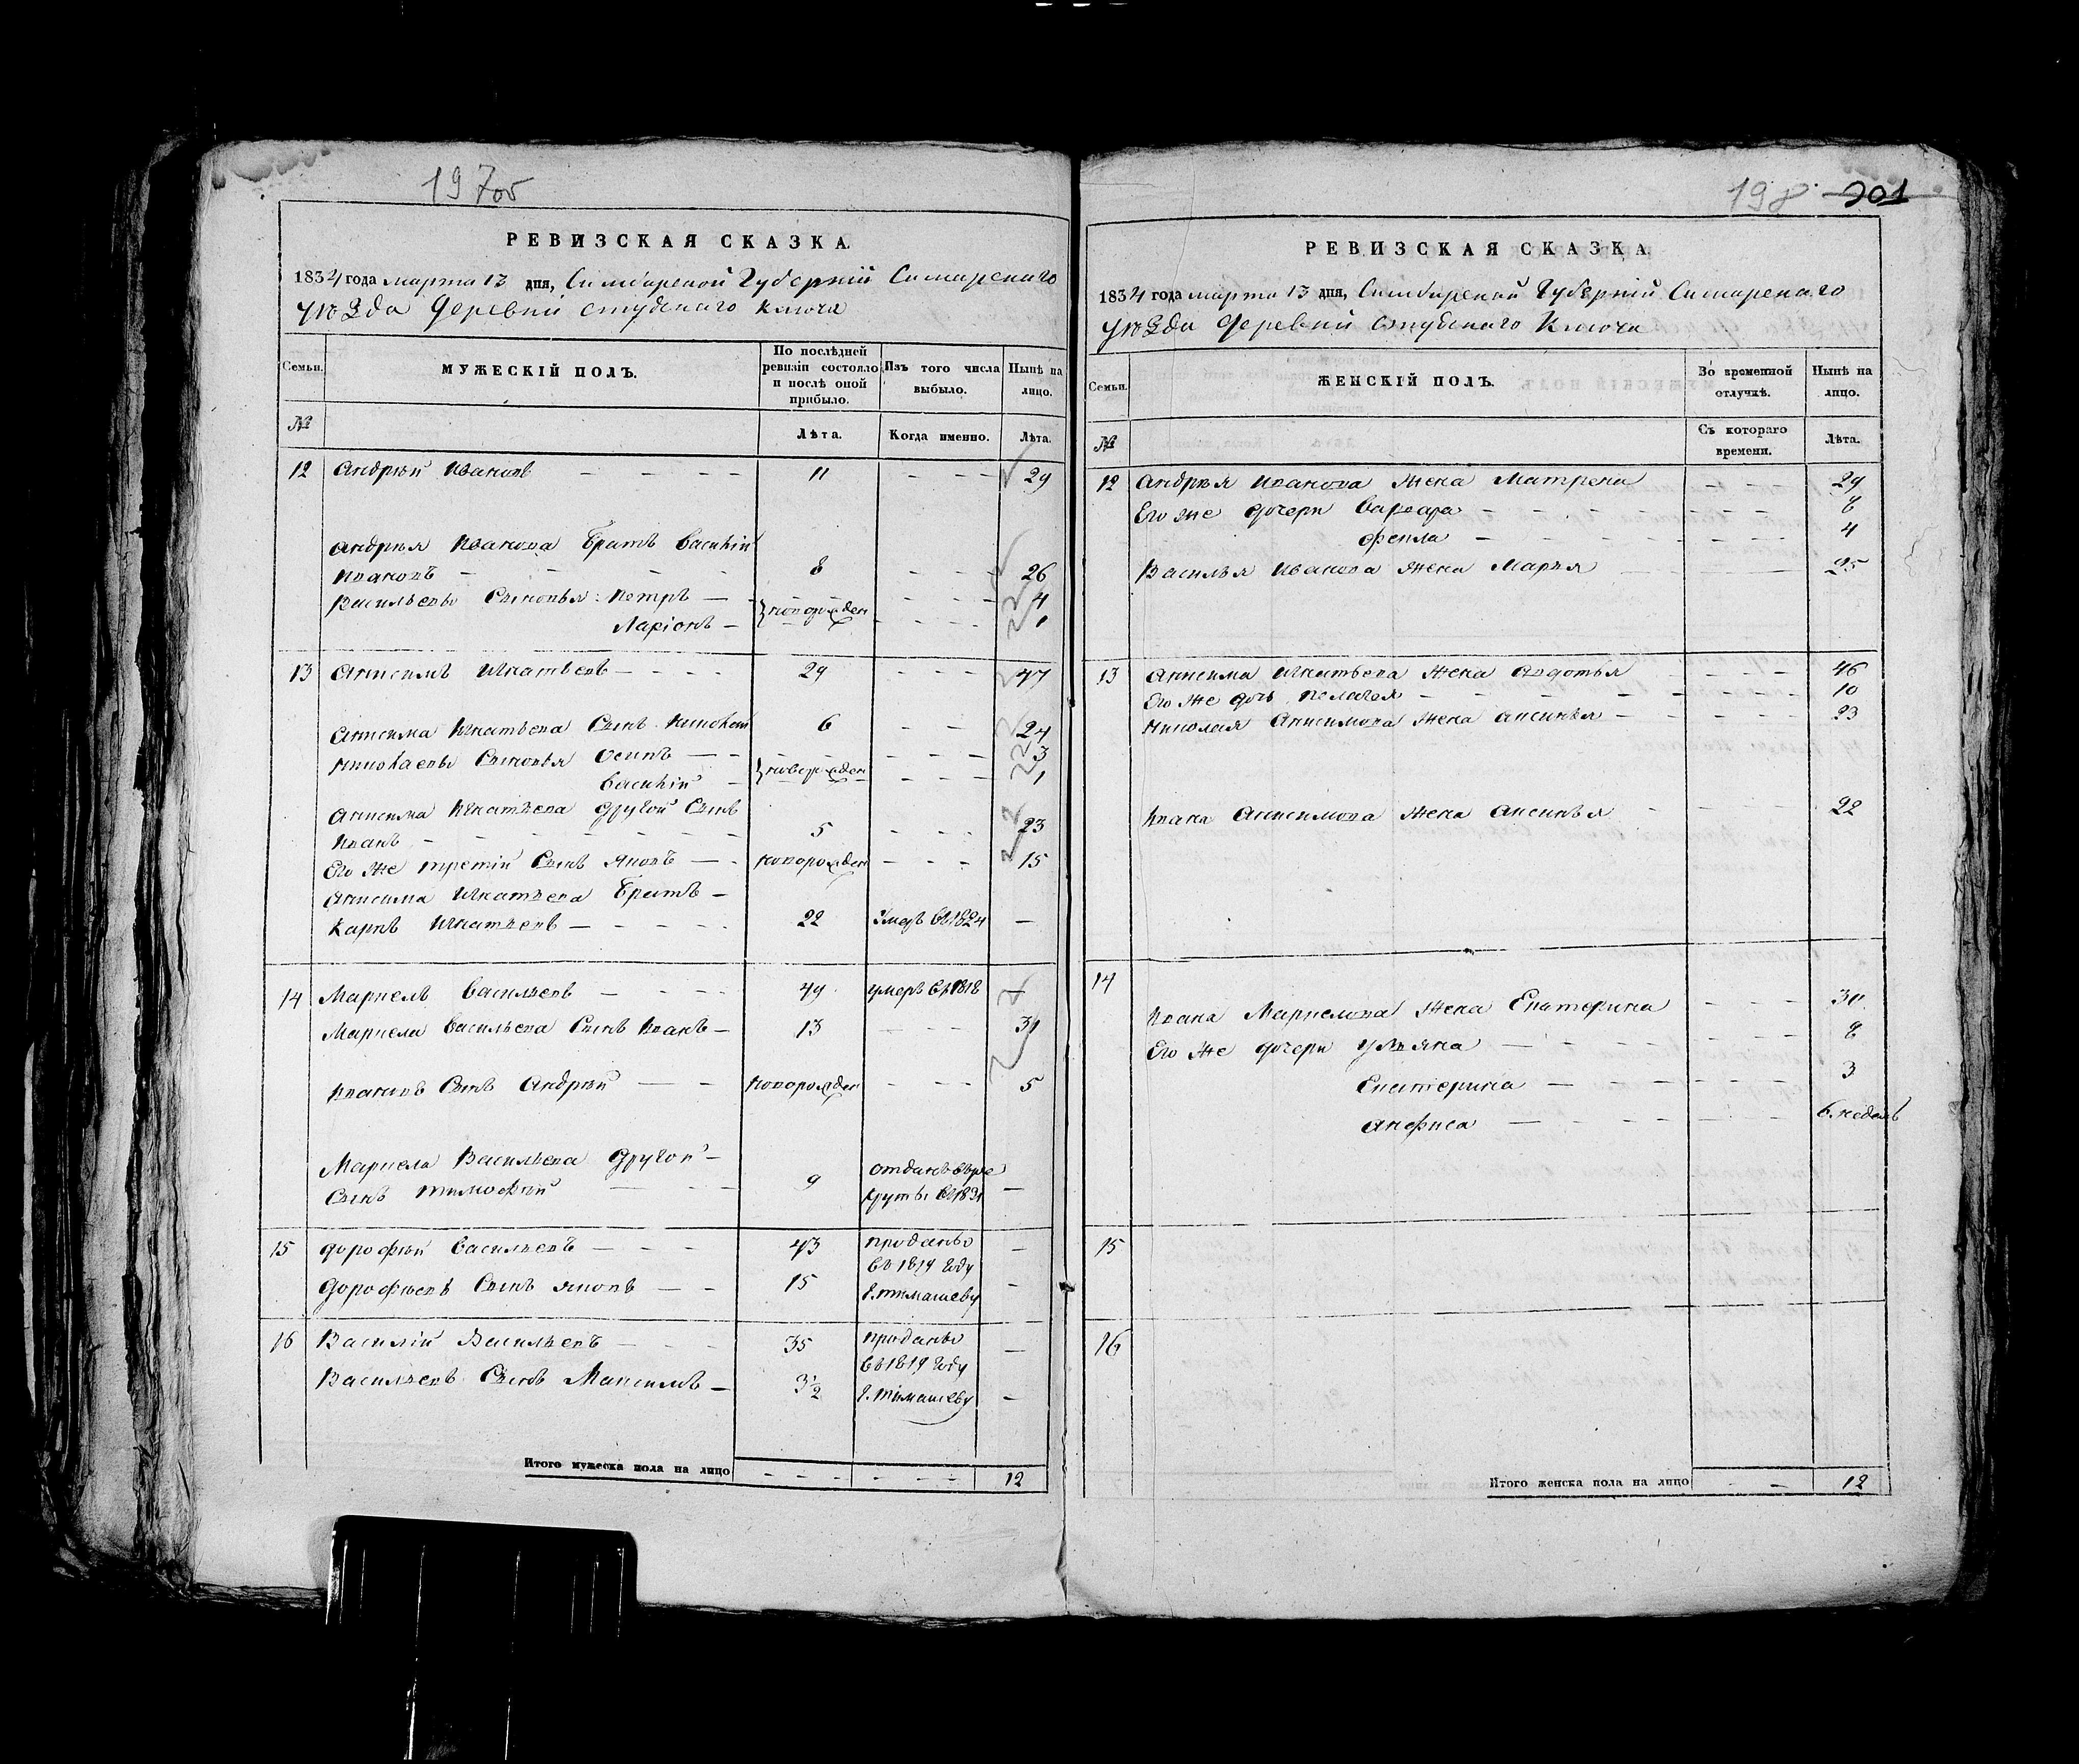 197об
РЕВИЗСКАЯ СКАЗКА.
1834 года марта 13 дня, Симбирской Губернiи Самарскаго
уѣзда Деревни Студенаго Ключа
Семьи.
МУЖЕСКIЙ ПОЛЪ.
По послѣдней ревизiи состояло и послѣ оной прибыло.
Изъ того числа выбыло.
Нынѣ на лицо.
№
Лѣта.
Когда именно.
Лѣта.
12 Андрѣй Ивановъ — — — — 11 — — — 29
Андрѣя Иванова Братъ Василiй
Ивановъ — — — 8 — — — 26
Васильевы Сыновья: Петръ — новорожден — — — 4
Ларiонъ — — — — 1
13 Анисимъ Игнатьевъ — — — — 29 — — — 47
Анисима Игнатьева Сынъ Николай 6 — — 24
Николаевы Сыновья Осипъ — — новорожден — — — 3
Василiй — — — — 1
Анисима Игнатьева другой Сынъ
Иванъ — — — — 5 — — — 23
Его же третiй Сынъ Яковъ — — новорожден — — — 15
Анисима Игнатьева Братъ —
Карпъ Игнатьевъ — — — — 22 Умеръ въ 1824 —
14 Маркелъ Васильевъ — — — — 49 умеръ въ 1818 —
Маркела Васильева Сынъ Иванъ — 13 — — — 31
Ивановъ Сынъ Андрѣй — — новорожден — — — 5
Маркела Васильева другой —
Сынъ Тимофѣй — — 9 отданъ въ рекруты въ 1831 —
15 Дорофѣй Васильевъ — — — 43 проданы —
въ 1819 году
Дорофѣевъ Сынъ Яковъ — — 15 г. Тимашеву —
16 Василiй Васильевъ — — — 35 проданы —
въ 1819 году
Васильевъ Сынъ Максимъ — 3½ г. Тимашеву —
Итого мужеска пола на лицо — — — — — — 12
198 201
РЕВИЗСКАЯ СКАЗКА
1834 года марта 13 дня, Симбирской Губернiи Самарскаго
уѣзда Деревни Студенаго Ключа
Семьи.
ЖЕНСКIЙ ПОЛЪ.
Во временной отлучкѣ.
Нынѣ на лицо.
№
Съ котораго времени.
Лѣта.
12 Андрѣя Иванова Жена Матрена — — — 29
Его же дочери Варвара — — — — 8
Фекла — — — — 4
Василья Иванова Жена Марья — — 25
13 Анисима Игнатьева Жена Авдотья — — — — 46
Его же дочь Пелагея — — — — 10
Николая Анисимова Жена Аксинья — — — — 23
Ивана Анисимова Жена Аксинья — — — 22
14
Ивана Маркелова Жена Екатерина — — — 30
Его же дочери Ульяна — — — — 8
Екатерина — — — — 3
Анфиса — — — — 6. недель
15
16
Итого женска пола на лицо — — 12